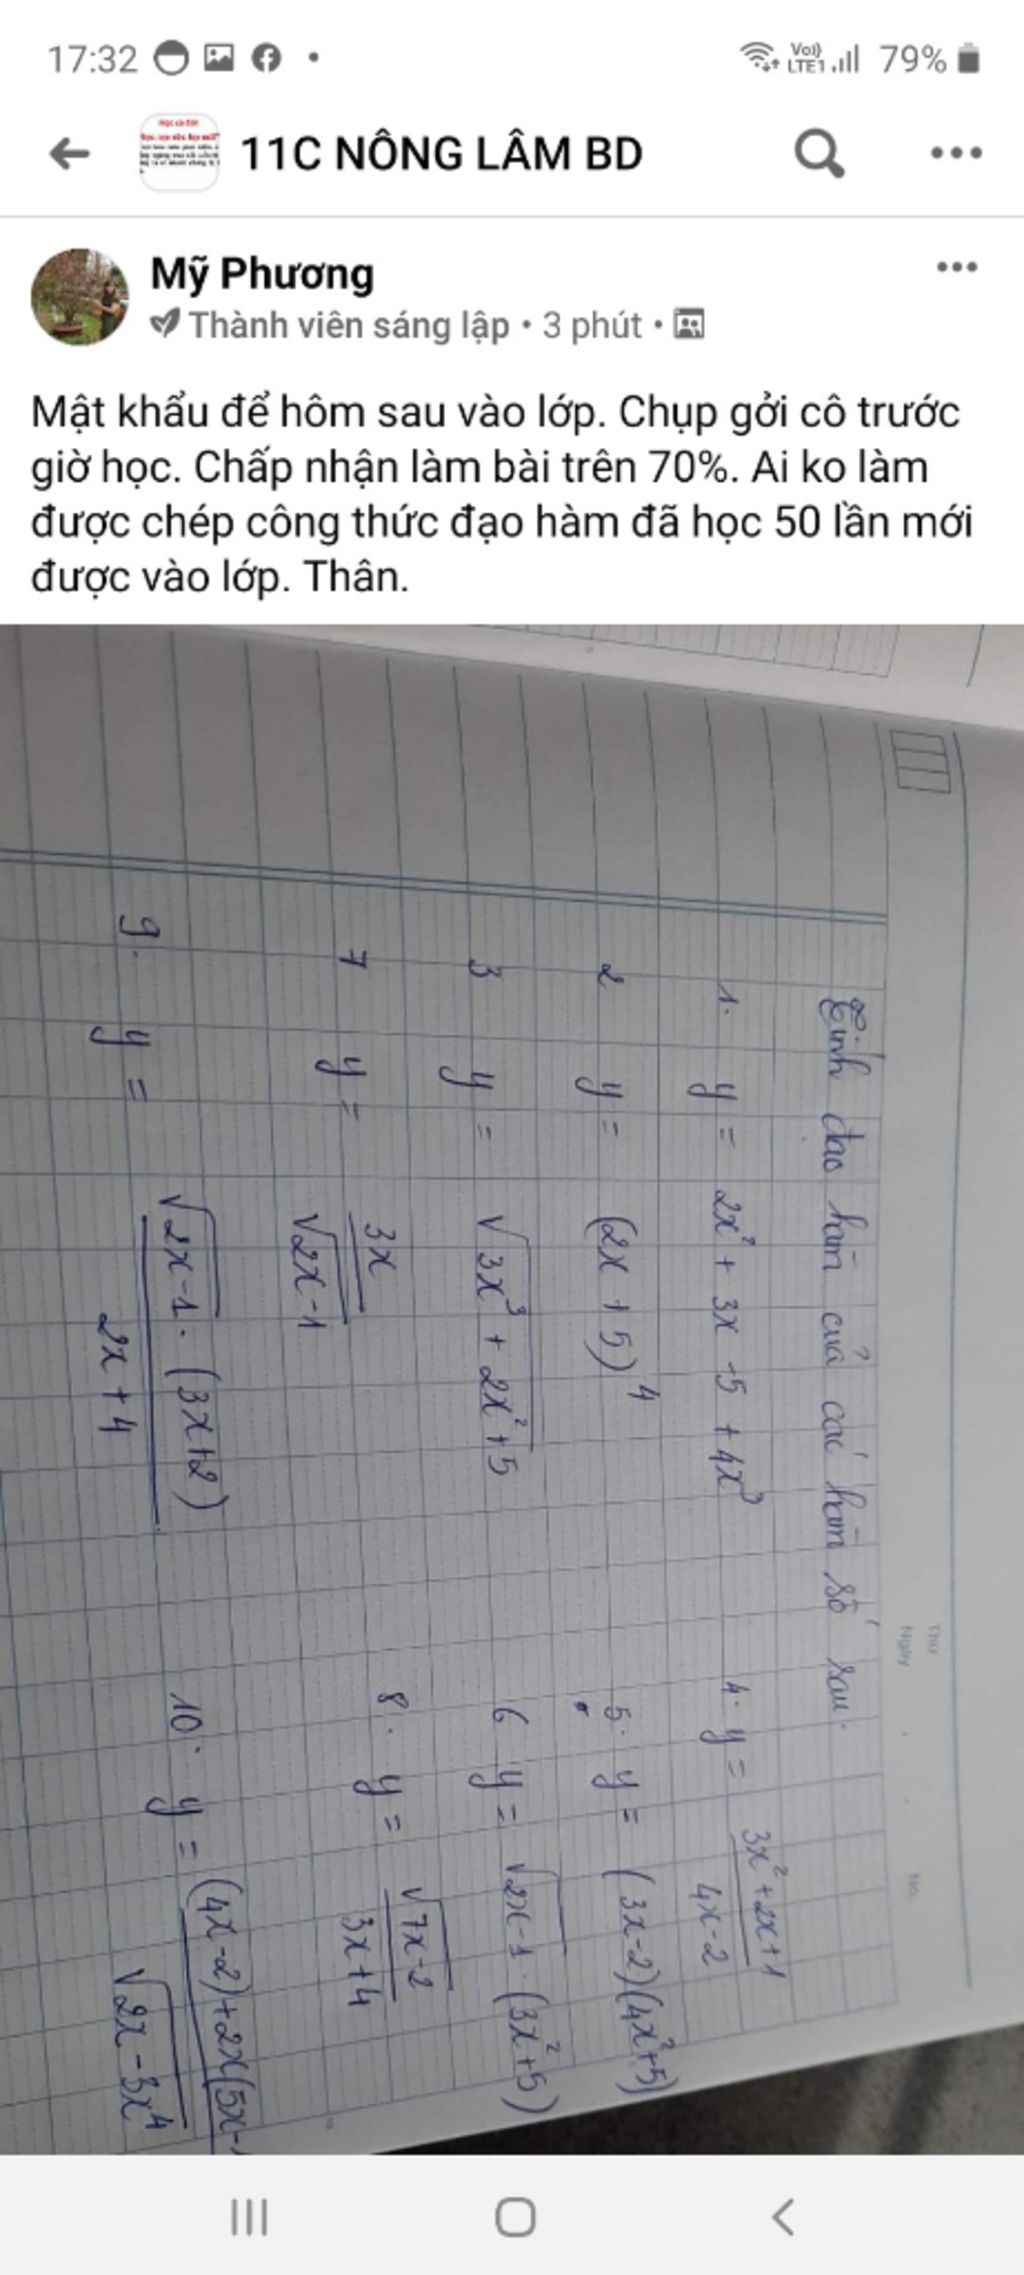 17:32
Vo)) LTE1 79%
11C NÔNG LÂM BD
Mỹ Phương
Thành viên sáng lập • 3 phút •
Mật khẩu để hôm sau vào lớp. Chụp gởi cô trước
giờ học. Chấp nhận làm bài trên 70%. Ai ko làm
được chép công thức đạo hàm đã học 50 lần mới
được vào lớp. Thân.
Thứ
Ngày
No.
Tính đạo hàm của các hàm số sau.
1. y = 2x² + 3x - 5 + 4x³
2 y = (2x + 5)⁴
3 y = √(3x³ + 2x² + 5)
4. y = (3x² + 2x + 1)/(4x - 2)
5. y = (3x - 2)(4x² + 5)
6 y = √2x - 1 . (3x² + 5)
7 y = 3x/√2x - 1
8. y = √7x - 2/(3x + 4)
9. y = √2x - 1 . (3x + 2)/(2x + 4)
10. y = (4x - 2) + 2x(5x -/√2x - 3x⁴